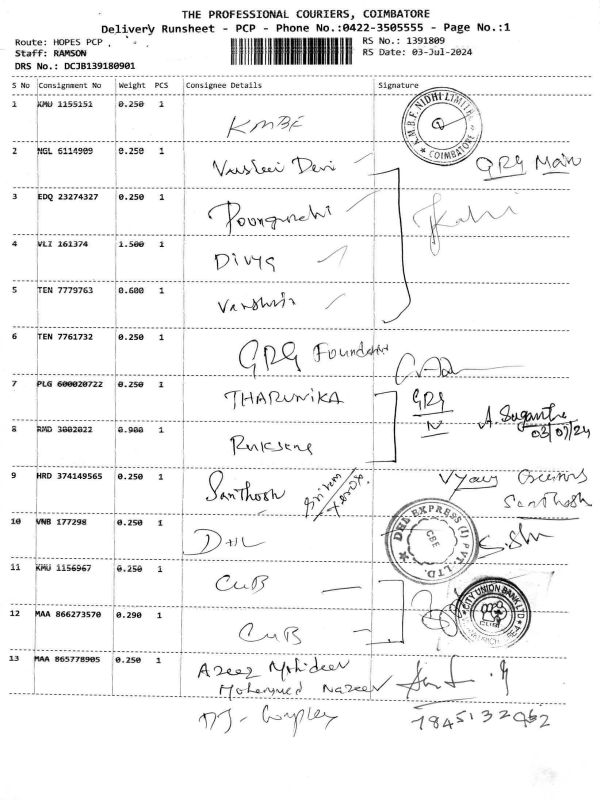 THE PROFESSIONAL COURIERS, COIMBATORE
Delivery Runsheet - PCP - Phone No.:0422-3505555 - Page No.:1
Route: HOPES PCP , RS No.: 1391809
Staff: RAMSON RS Date: 03-Jul-2024
DRS No.: DCJB139180901
S No Consignment No Weight PCS Consignee Details Signature
1 KMU 1155151 0.250 1 KMBF
K.M.B.F. NIDHI LIMITED
COIMBATORE
2 NGL 6114909 0.250 1 Devi GRG Main
3 EDQ 23274327 0.250 1
4 VLI 161374 1.500 1 Divya
5 TEN 7779763 0.600 1
6 TEN 7761732 0.250 1 GRG Foundation
7 PLG 600020722 0.250 1 THARUNIKA GRG
8 RMD 3002022 0.900 1 N A. Sugantha
03/07/24
9 HRD 374149565 0.250 1 Santhosh
Santhosh
10 VNB 177298 0.250 1 DHL
DHL EXPRESS (I) PVT. LTD.
CBE
11 KMU 1156967 0.250 1 CUB
CITY UNION BANK LTD
CUB
12 MAA 866273570 0.290 1 CUB
13 MAA 865778905 0.250 1 Azeez Mohideen
Mohammed Nazeer
DJ-